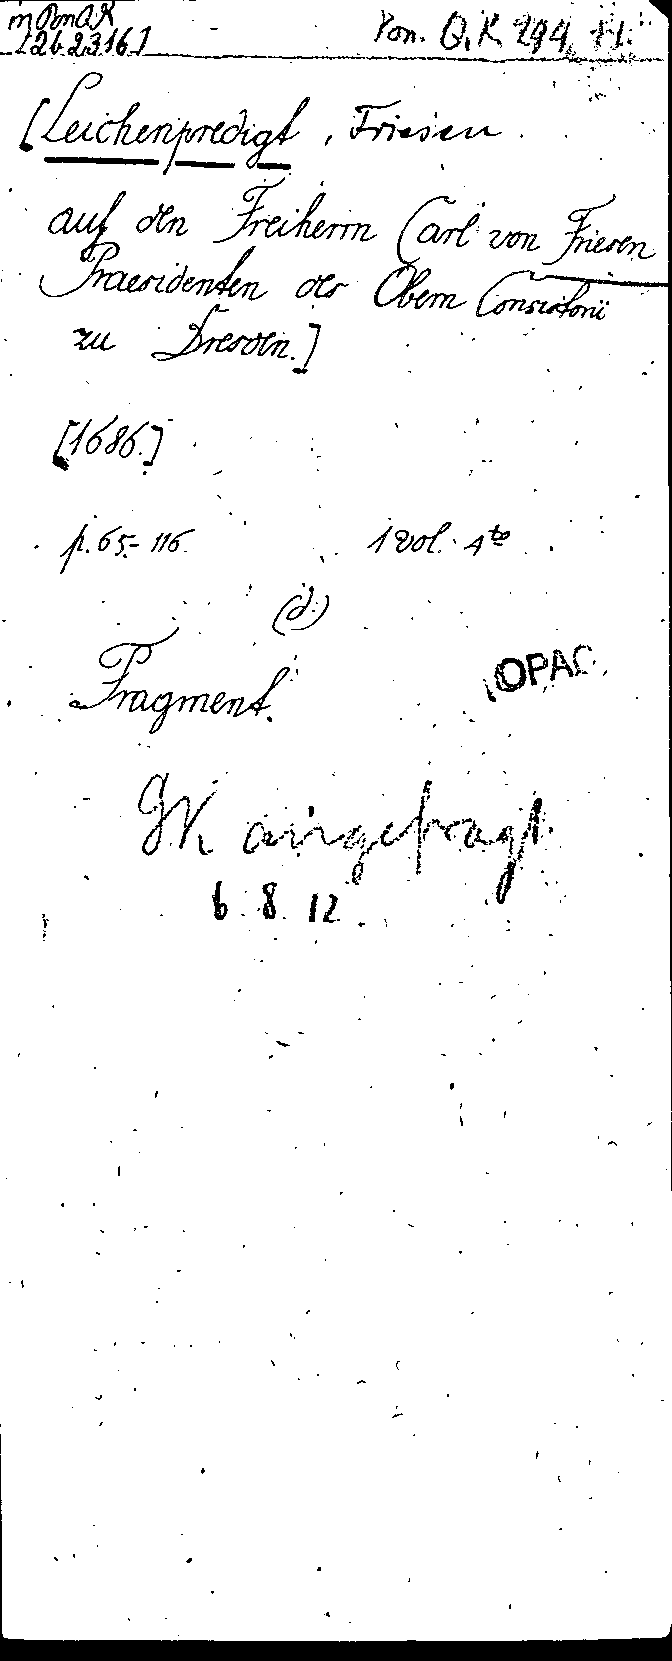 Pon. QK 294, 11.
[Leichenpredigt, Friesen
auf den Freiherrn Carl von Friesen
Praesidenten des Obern Consistorii
zu Dresden.]
[1686.]
p. 65-116. 1 vol. 4to
(d.)
Fragment.
OPAC
GK angefragt
6 8 12.